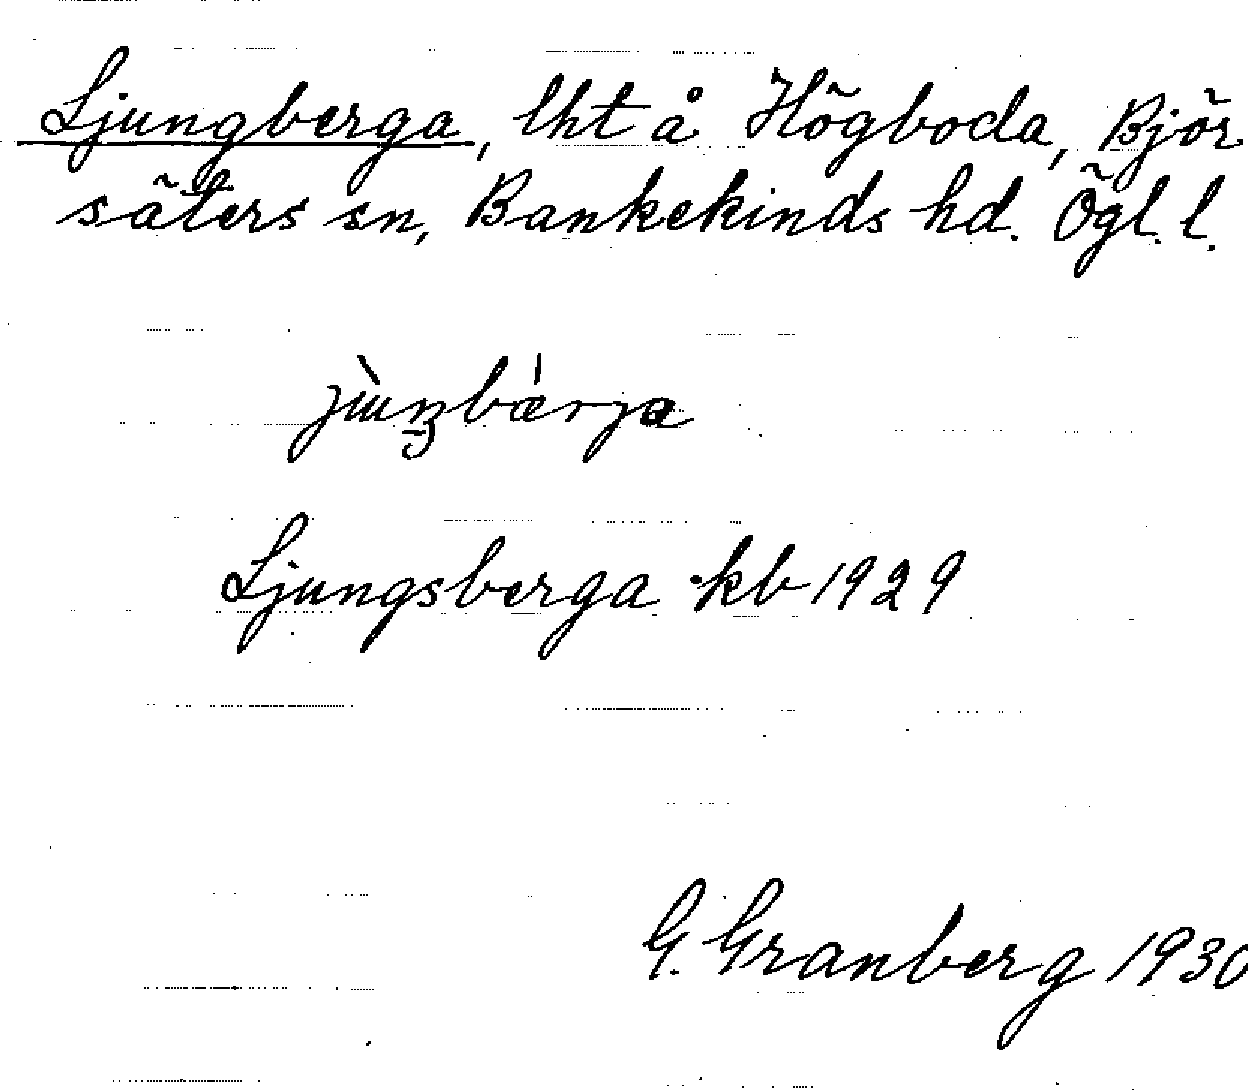 Ljungberga, lht å Högboda, Björ
säters sn, Bankekinds hd. Ögl. l.
Ljungsberga kb 1929
G. Granberg 1930